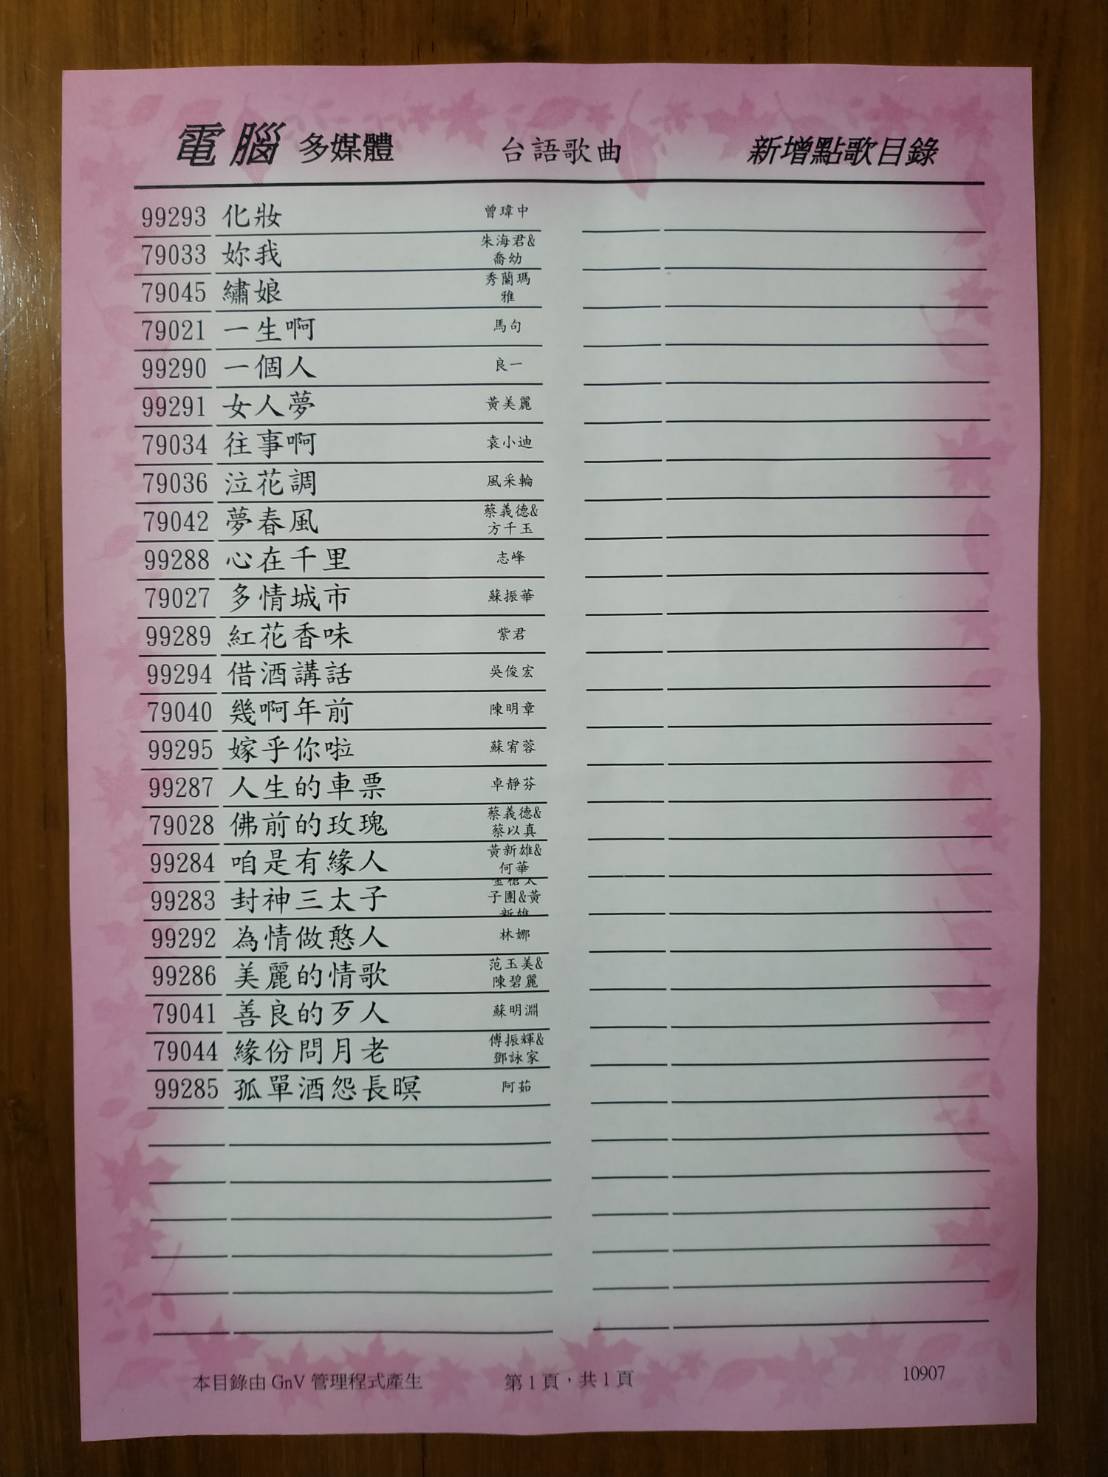 電腦 多媒體 台語歌曲 新增點歌目錄
99293 化妝 曾瑋中
79033 妳我 朱海君&喬幼
79045 繡娘 秀蘭瑪雅
79021 一生啊 馬句
99290 一個人 良一
99291 女人夢 黃美麗
79034 往事啊 袁小迪
79036 泣花調 風采輪
79042 夢春風 蔡義德&方千玉
99288 心在千里 志峰
79027 多情城市 蘇振華
99289 紅花香味 紫君
99294 借酒講話 吳俊宏
79040 幾啊年前 陳明章
99295 嫁乎你啦 蘇宥蓉
99287 人生的車票 卓靜芬
79028 佛前的玫瑰 蔡義德&蔡以真
99284 咱是有緣人 黃新雄&何華
99283 封神三太子 子團&黃
99292 為情做憨人 林娜
99286 美麗的情歌 范玉美&陳碧麗
79041 善良的歹人 蘇明淵
79044 緣份問月老 傅振輝&鄧詠家
99285 孤單酒怨長暝 阿茹
本目錄由 GnV 管理程式產生 第1頁，共1頁 10907